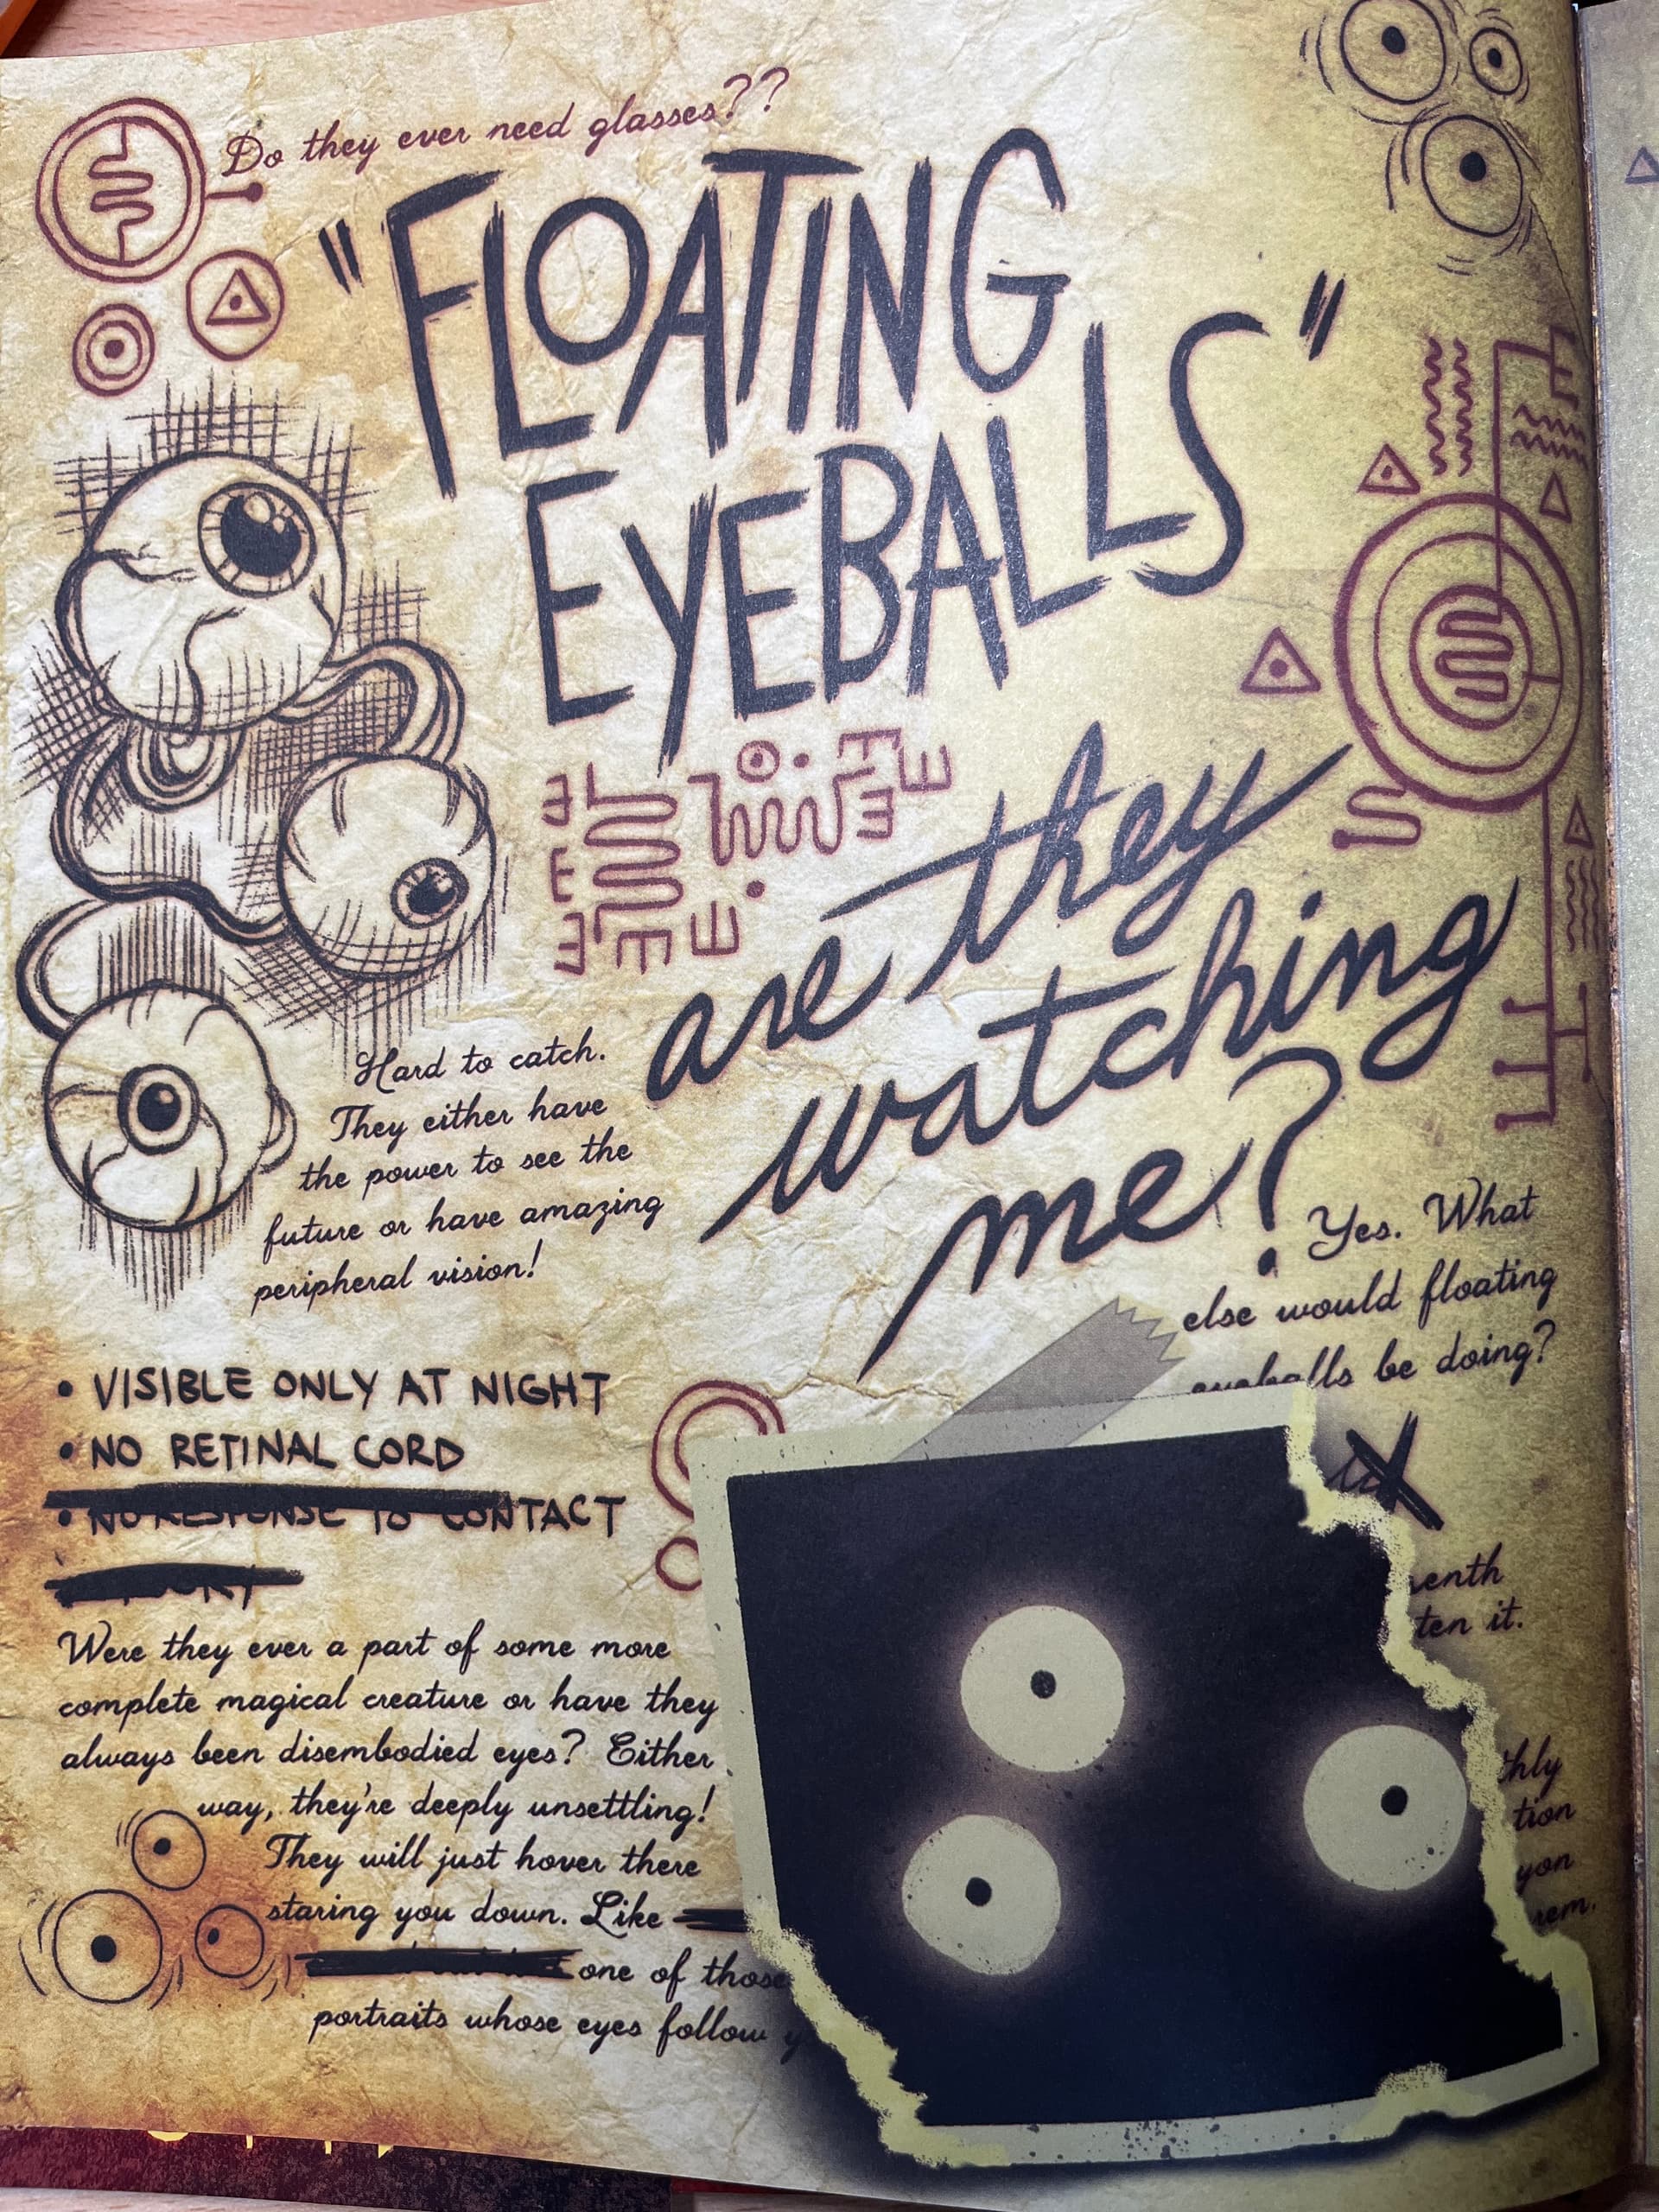 Do they ever need glasses??
"FLOATING
EYEBALLS"
are they
watching
me?
Hard to catch.
They either have
the power to see the
future or have amazing
peripheral vision!
Yes. What
else would floating
eyeballs be doing?
• VISIBLE ONLY AT NIGHT
• NO RETINAL CORD
• NO RESPONSE TO CONTACT
Were they ever a part of some more
complete magical creature or have they
always been disembodied eyes? Either
way, they're deeply unsettling!
They will just hover there
staring you down. Like
one of those
portraits whose eyes follow
enth
ten it.
thly
tion
yon
rem.